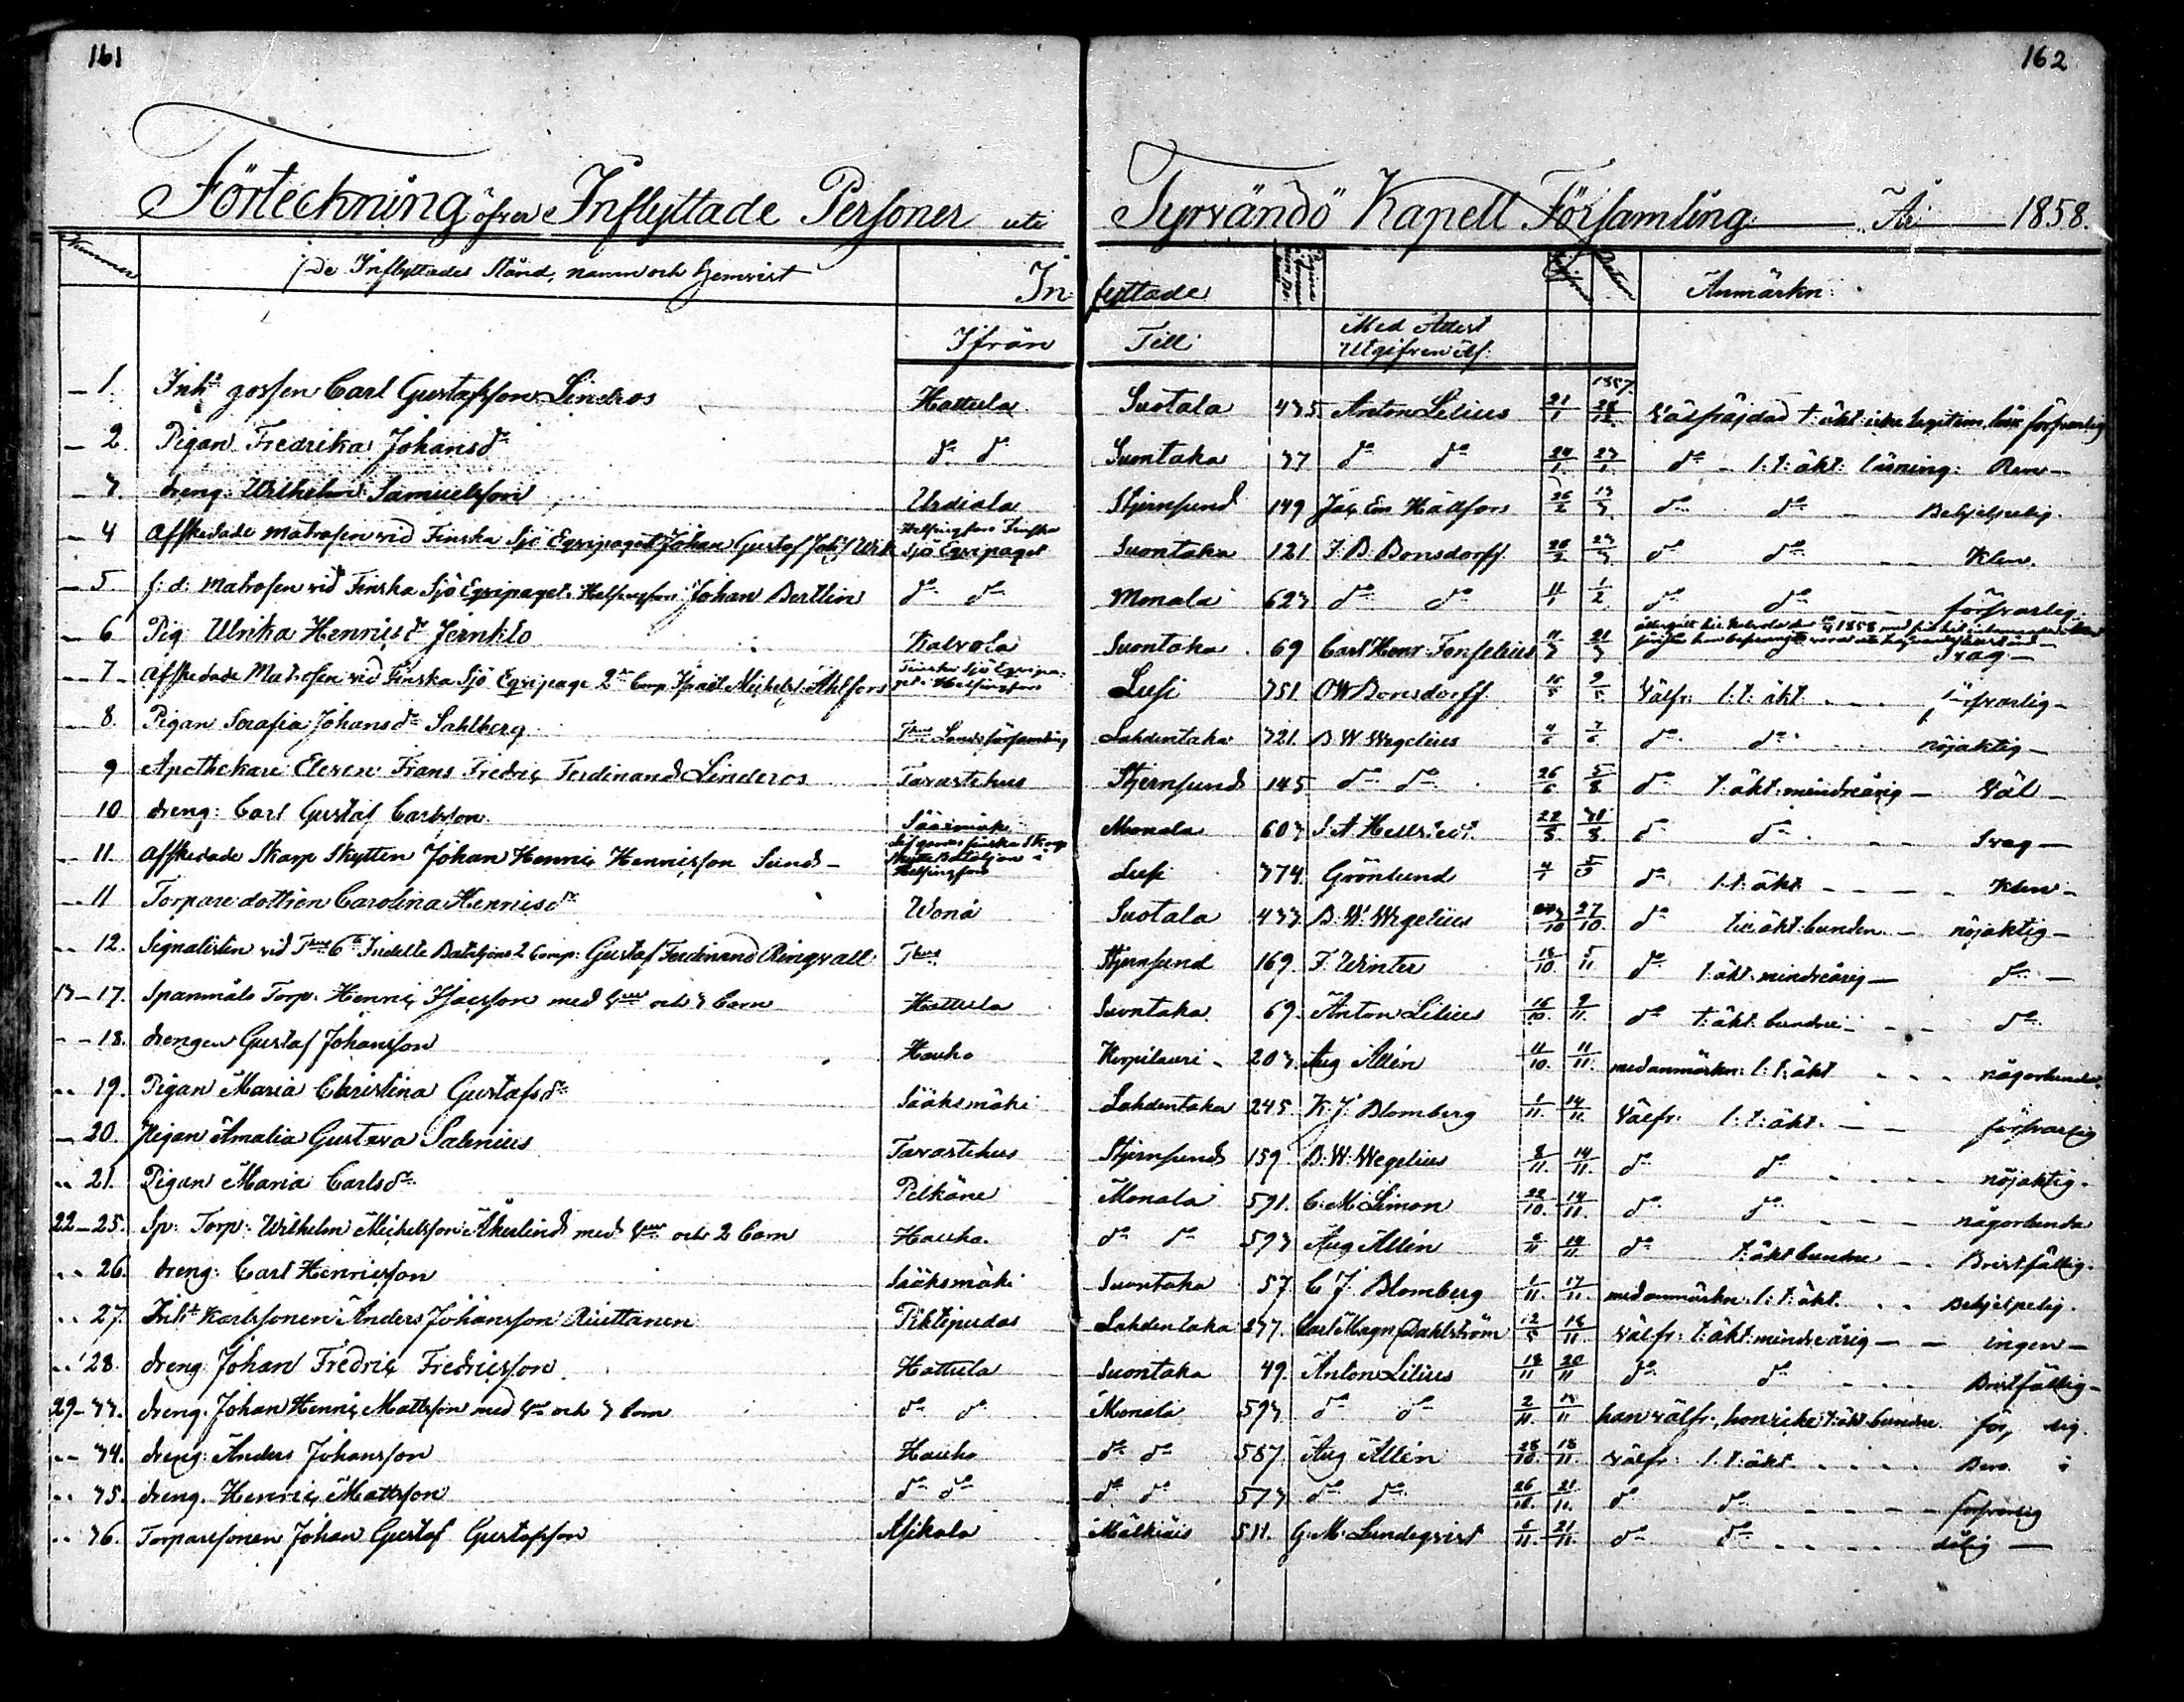 161
162
Förteckning öfver Inflyttade Personer uti Tyrvändö Kapell Församling År 1858.
Nummer De Inflyttades Stånd, namn och hemvist In flyttade Anmärkn:
Ifrån Till Med Attest Utgifven af:
1857.
1. Inh: gossen Carl Gustafsson Lindros Hattula Suotala 435 Anton Lilius 21/1 28/12 Välfräjdad t: äkt: icke legitim, läs: försvarlig
2. Pigan Fredrika Johansdr do do Suontaka 37 do do 24/1 27/1 do l: t: äkt: läsning: Ren
3. dreng: Wilhelm Samuelsson Urdiala Stjernsund 149 Jac Em Hällfors 26/2 13/3 do do Behjelpelig.
4 Afskedade Matrosen vid Finska Sjö Eqvipaget Johan Gustaf Joh:s: Wik Helsingfors Finska Sjö Eqvipaget Suontaka 121 J: B: Bonsdorff 26/2 do do Klen.
5 f: d: Matrosen vid Finska Sjö Eqvipaget i Helsingfors Johan Bertlin do do Monala 623 do do 11/1 1/2 do do försvarlig.
6 Pig Ulrika Henricsdr Jernklo Kalvola Suontaka 69 Carl Henr: Fonselius 11/3 21/3 återgått till Kalvola 1858 med
Svag
7 Afskedade Matrosen vid Finska Sjö Eqvipage 2 Comp Isaac Michelss: Ahlfors Finska Sjö Eqvipaget i Helsingfors Lusi 351 O W Bonsdorff 16/5 9/5 Välfr: l: t: äkt försvarlig
8. Pigan Serafia Johansdr Sahlberg Thus Landsförsamling Lahdentaka 321 B. W. Wegelius 4/6 7/6 do do nöjaktig
9 Apothekare Eleven Frans Fredric Ferdinand Linderos Tavastehus Stjernsund 145 do do 26/6 5/8 do t: äkt: mindreårig Väl
10 dreng: Carl Gustaf Carlsson Sääxmäk Monala 603 22/8 31/8 do do Svag
11. Afskedade Skarp Skytten Johan Henric Henricsson Sund Lif gardes finska Skarp Skytte Bataljon i Helsingfors Lusi 374. Grönlund do l: t: äkt Klen
11 Torpare dottren Carolina Henricsdr Wonå Suotala 433 B. W. Wegelius 27/10. do till äkt: bunden nöjaktig
12. Signalisten vid Thus 6te Indelte Bataljons 2 Comp: Gustaf Ferdinand Ringvall Thus Stjernsund 169. F. Winter 18/10. 5/11 do t: äkt: mindreårig do
13-17. Spanmåls Torp: Henric Isacsson med hu och 3 barn Hattula Suontaka 69. Anton Lilius 16/10. 9/11. do t: äkt: bundne do
18. drengen Gustaf Johansson Hauho Korpilauri 203 Aug Allén 11/10. 11/11. med anmärkn: l: t: äkt någorlunda.
19. Pigan Maria Christina Gustafsdr Sääksmäki Lahdentaka 245. K. J. Blomberg 1/11. 14/11. Välfr: l: t: äkt. försvarlig
20. Pigan Amalia Gustava Salenius Tavastehus Stjernsund 159. B. W. Wegelius 8/11. 14/11. do do nöjaktig.
21. Pigan Maria Carlsdr Pelkäne Monala 591. C. M. Limon 22/10. 14/11. do do någorlunda
22-25. Sp: Torp: Wilhelm Michelsson Åkerlind med hu och 2 barn Hauho. do do 593 Aug Allén 6/11 14/11 do t: äkt bundne Bristfällig.
26. dreng: Carl Henricsson Sääksmäki Suontaka 57. C J Blomberg 1/11. 17/11. med anmärkn. l: t: äkt. Behjelpelig.
27. Inh: Karlssonen Anders Johansson Riuttanen Pihtipudas Lahdentaka 237. Carl Magn: Dahlström 12/5 18/11. Välfr: t: äkt: mindreårig ingen
28. dreng: Johan Fredric Fredricsson Hattula Suontaka 49. Anton Lilius 18/11 20/11 do do Bristfällig
29-33. dreng. Johan Henric Mattsson med hu och 3 barn do do Monala 593 do do 2/11 han välfr:, hon icke t: äkt: bundne för, sig.
34. dreng: Anders Johansson Hauho do do 587. Aug Allén 28/10. 18/11. Välfr: l: t: äkt
35. dreng. Henric Mattsson do do do do 573 do do 26/10. 21/11. do do försvarlig
36. Torparesonen Johan Gustaf Gustafsson Asikala Mälkiäis 511. G. M. Lundeqvist 6/11. 21/11. do do dålig